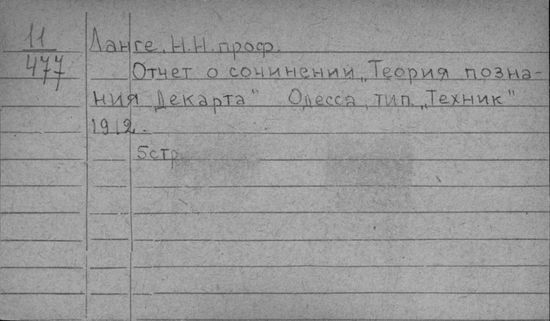 11
477
Ланге. Н.Н. проф.
Отчет о сочинении „Теория позна-
ния Декарта" Одесса, тип. „Техник"
1912.
5стр.